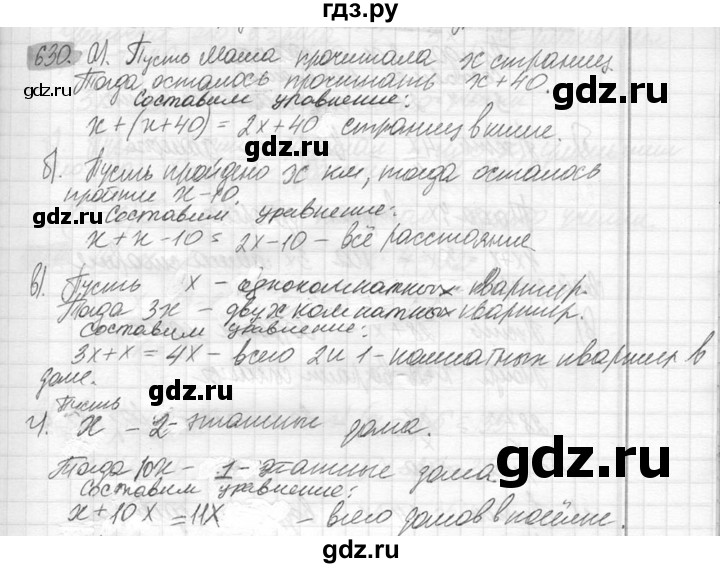 гдз.ру
630. а). Пусть Маша прочитала x страниц
Тогда осталось прочитать x+40.
Составим уравнение:
x+(x+40) = 2x+40 страниц в книге.
б). Пусть пройдено x км, тогда осталось
пройти x-10.
Составим уравнение:
x+x-10 = 2x-10 - всё расстояние
в). Пусть x - однокомнатных квартир.
Тогда 3x - двухкомнатных квартир.
Составим уравнение:
3x+x = 4x - всего 2 и 1-комнатных квартир в
доме.
Пусть
г). x - 2-этажные дома.
Тогда 10x - 1-этажные дома
Составим уравнение:
x+10x = 11x - всего домов в посёлке.
gdz.ru
gdz.ru
gdz.ru
gdz.ru
gdz.ru
gdz.ru
gdz.ru
gdz.ru